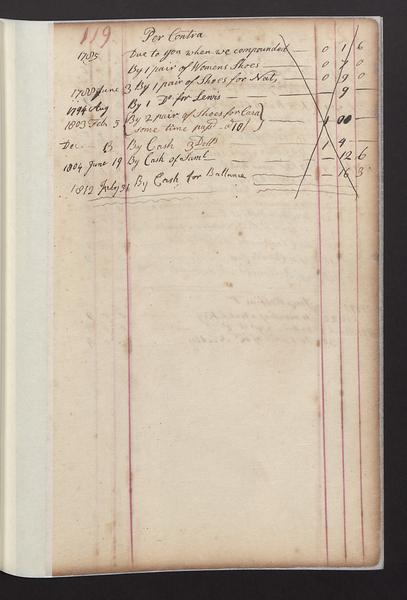 119
Per Contra
1785 Due to you when we compounded 0 1 6
By 1 pair of Womens Shoes 0 7 0
June 3 By 1 pair of Shoes for Nat, 0 9 0
1794 Aug By 1 Do for Lewis 9
1803 Feb. 5 By 2 pair of Shoes for
some time past a 10/
Dec. 13 By Cash 3 Dolls 1
1804 June 19 By Cash of Saml 12 6
1812 July 31 By Cash for Ballance 16 3